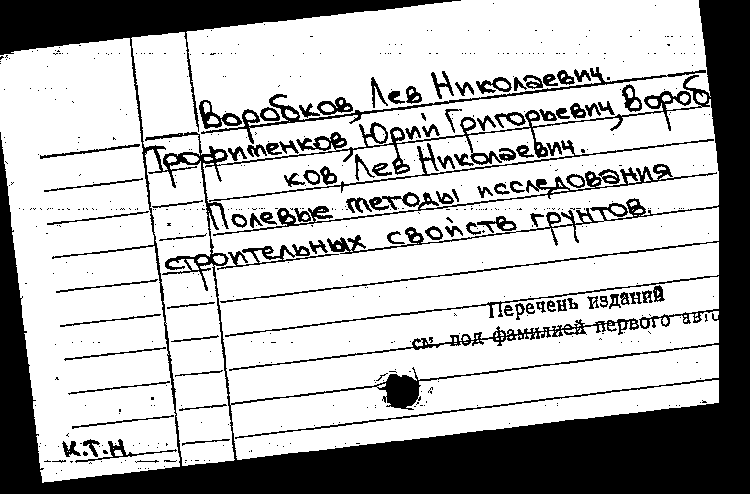 Воробков, Лев Николаевич.
Трофименков, Юрий Григорьевич, Вороб
ков, Лев Николаевич.
Полевые методы исследования
строительных свойств грунтов.
Перечень изданий
см. под фамилией первого авто
к.т.н.